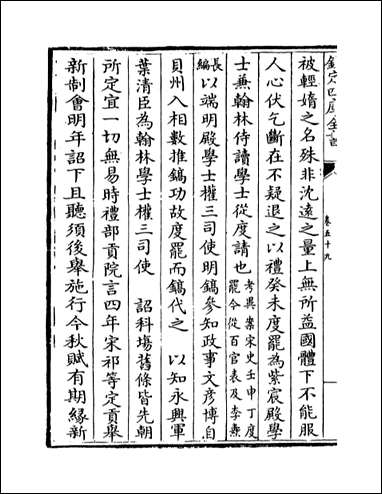 欽定四庫全書
卷五十九
被輕媠之名殊非沈遠之量上無所益國體下不能服
人心伏乞斷在不疑退之以禮癸未度罷為紫宸殿學
士兼翰林侍讀學士從度請也
考異案宋史壬申丁度
罷今從百官表及李燾
長編
以端明殿學士權三司使明鎬參知政事文彥博自
貝州入相數推鎬功故度罷而鎬代之　以知永興軍
葉清臣為翰林學士權三司使　詔科塲舊條皆先朝
所定宜一切無易時禮部貢院言四年宋祁等定貢舉
新制會明年詔下且聽須後舉施行今秋賦有期緣新